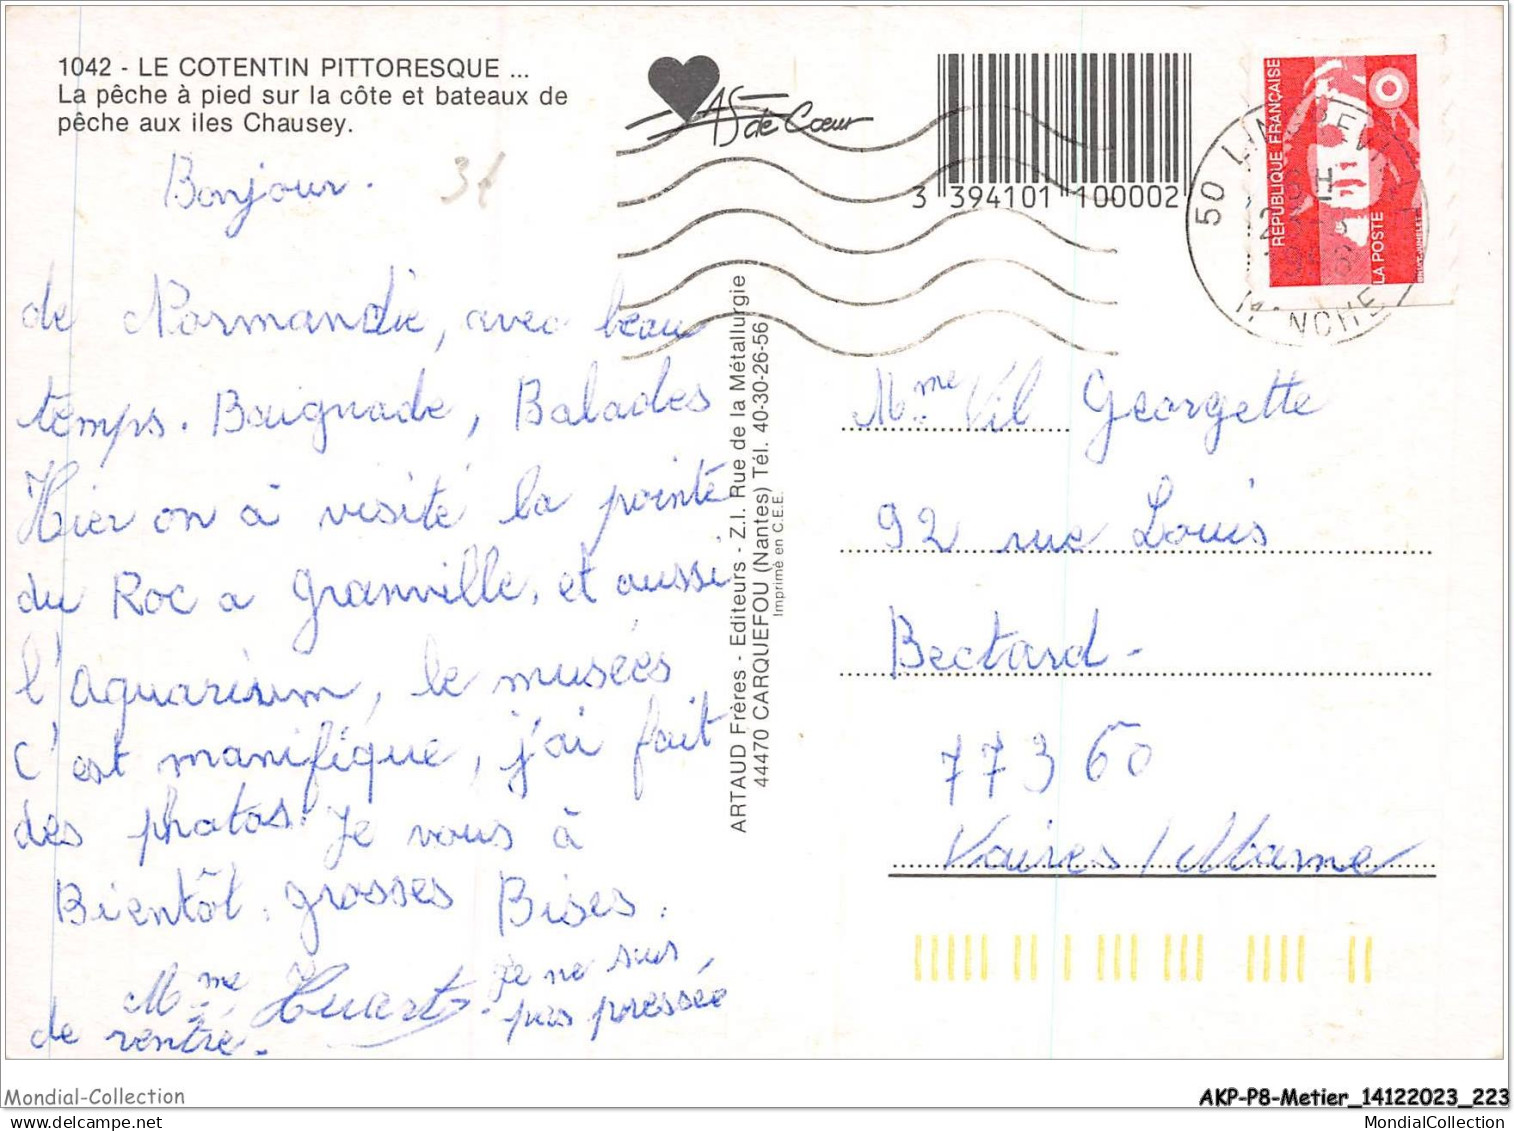 1042 - LE COTENTIN PITTORESQUE ...
La pêche à pied sur la côte et bateaux de
pêche aux iles Chausey.
AS de Cœur
3 394101 100002
RÉPUBLIQUE FRANÇAISE
LA POSTE
50
MANCHE
Bonjour.
de Normandie, avec beau
temps. Baignade, Balades
Hier on à visité la pointe
du Roc a granville, et aussi
l'aquarium, le musées
c'est manifique, j'ai fait
des photos. Je vous à
Bientôt. grosses Bises.
Mme Huart. je ne suis
pas pressée
de rentré.
ARTAUD Frères - Editeurs - Z.I. Rue de la Métallurgie
44470 CARQUEFOU (Nantes) Tél. 40-30-26-56
Imprimé en C.E.E.
Mme Vil Georgette
92 rue Louis
Bectard -
77360
Vaires / Marne
Mondial-Collection
AKP-P8-Metier_14122023_223
MondialCollection